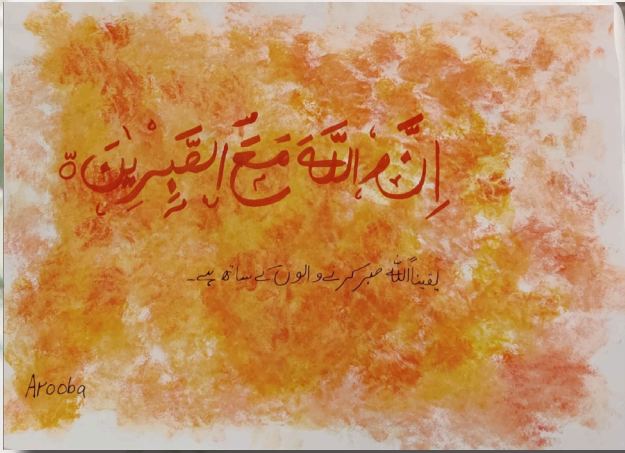 اِنَّ اللّٰهَ مَعَ الصّٰبِرِيْنَ
یقیناً اللہ صبر کرنے والوں کے ساتھ ہے۔
Arooba